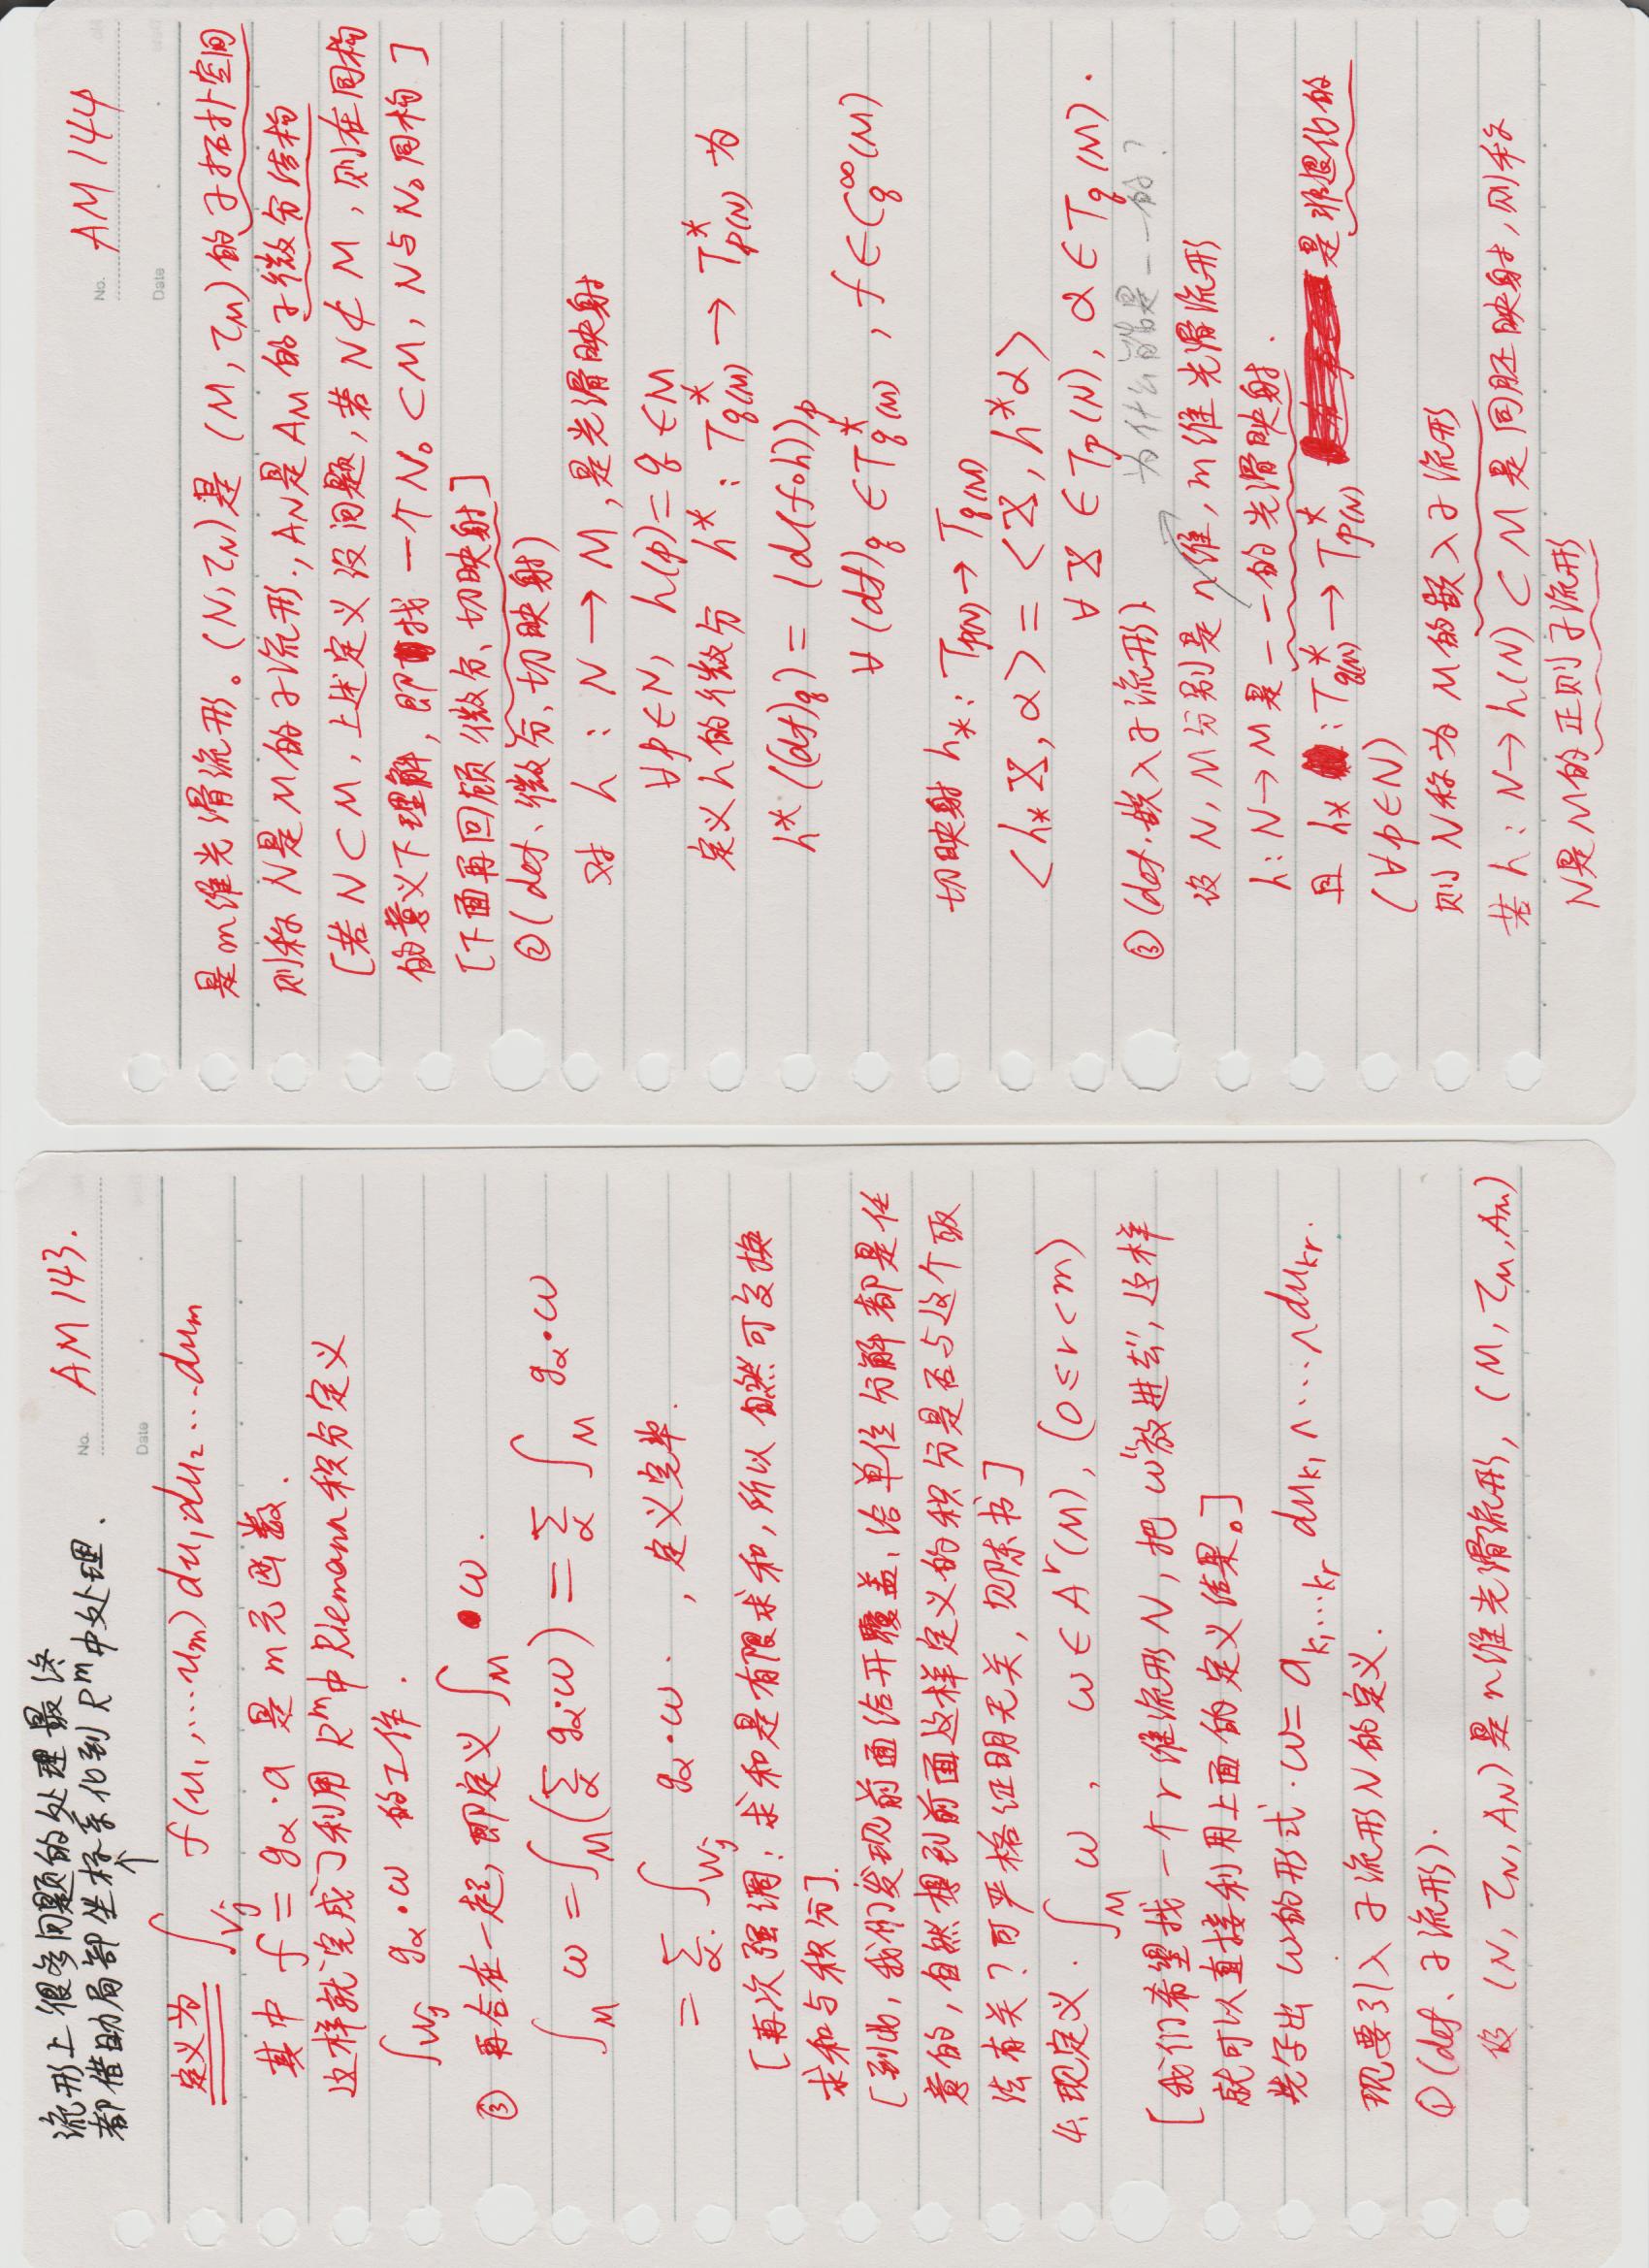 流形上很多问题的处理最终
都借助局部坐标系化到 R^m中处理.
No. AM 143.
Date
定义为 ∫_{Vj} f(u₁,…u_m) du₁du₂…du_m
其中 f = gα·a 是 m元函数.
这样就完成了利用 R^m中Riemann积分定义
∫_{Wj} gα·ω 的工作.
③ 再合在一起, 即定义 ∫_M ω.
∫_M ω = ∫_M (Σ_α gα·ω) = Σ_α ∫_M gα·ω
= Σ_α. ∫_{Wj} gα·ω. , 定义完毕.
[再次强调: 求和是有限求和, 所以自然可交换
求和与积分].
[到此, 我们发现前面给开覆盖、给单位分解都是任
意的, 自然想到前面这样定义的积分是否与这个取
法有关? 可严格证明无关, 见陈书]
4. 现定义. ∫_M ω , ω∈A^r(M), (0≤r<m)
[我们希望找一个r维流形N, 把ω“放进去”, 这样
就可以直接利用上面的定义结果。]
先写出 ω的形式. ω= a_{k₁…kr} du_{k₁}∧…∧du_{kr}.
现要引入子流形N的定义.
①(def、子流形).
设 (N, τ_N, A_N)是n维光滑流形, (M, τ_M, A_M)
No. AM 144
Date
是m维光滑流形。(N,τ_N)是 (M,τ_M)的子拓扑空间
则称 N是M的子流形., A_N是A_M的子微分结构
[若N⊂M, 上述定义没问题, 若N⊄M, 则在同构
的意义下理解, 即找一个N₀⊂M, N与N₀同构]
[下面再回顾微分、切映射]
②(def、微分、切映射)
对 h : N → M, 是光滑映射
∀p∈N, h(p)= q ∈M
定义h的微分 h* : T*_{q(M)} → T*_{p(N)} 为
h*((df)_q) = (d(f∘h))_p
∀(df)_q ∈T*_{q(M)} , f∈C^∞_q(M)
切映射 h_* : T_{p(N)} → T_{q(M)}
<h_*X, α> = <X, h*α>
∀X ∈T_p(N), α∈T_q(M).
③(def.嵌入子流形).
为什么能是一一的?
设 N, M分别是n维, m维光滑流形
h: N→M是一一的光滑映射.
且 h_* : T*_{q(M)} → T*_{p(N)} 是非退化的
(∀p∈N)
则 N称为 M的嵌入子流形
若h : N→h(N) ⊂ M是同胚映射, 则称
N是M的正则子流形